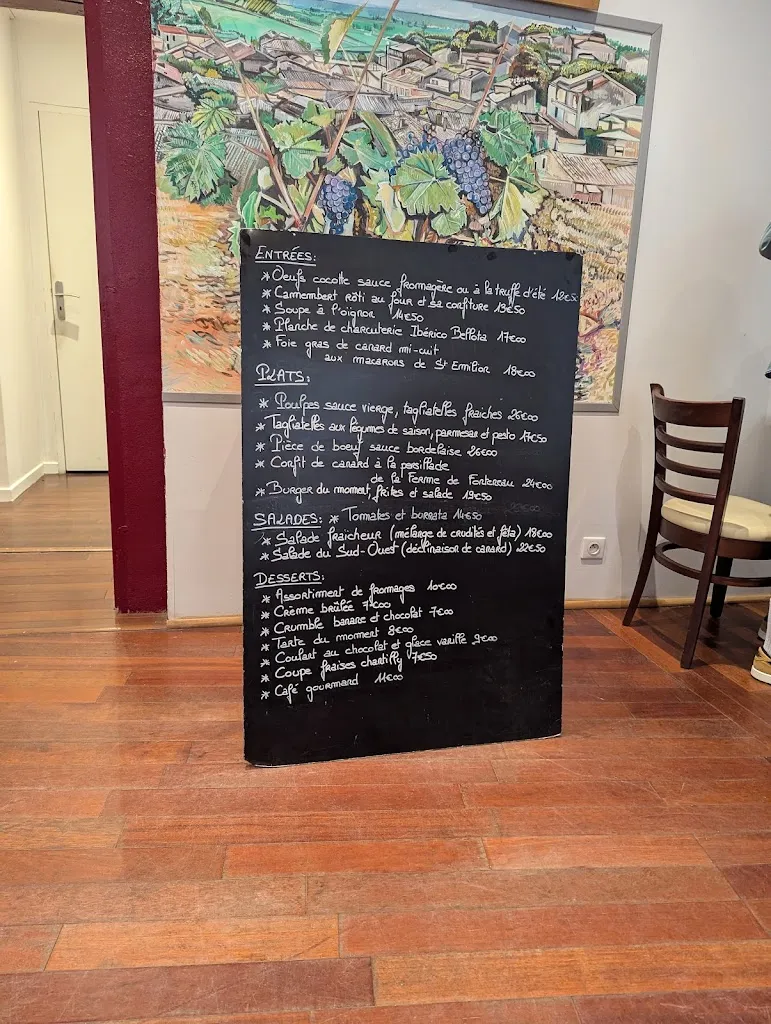 ENTRÉES:
* Oeufs cocotte sauce fromagère ou à la truffe d'été 18€50
* Camembert rôti au four et sa confiture 13€50
* Soupe à l'oignon 14€50
* Planche de charcuterie Ibérico Bellota 17€00
* Foie gras de canard mi-cuit
aux macarons de St Emilion 18€00
PLATS:
* Poulpes sauce vierge, tagliatelles fraiches 26€00
* Tagliatelles aux légumes de saison, parmesan et pesto 17€50
* Pièce de boeuf sauce bordelaise 26€00
* Confit de canard à la persillade
de la Ferme de Fontereau 24€00
* Burger du moment, frites et salade 19€50
SALADES: * Tomates et burrata 14€50
* Salade fraicheur (mélange de crudités et féta) 18€00
* Salade du Sud-Ouest (déclinaison de canard) 22€50
DESSERTS:
* Assortiment de fromages 10€00
* Crème brûlée 7€00
* Crumble banane et chocolat 7€00
* Tarte du moment 8€00
* Coulant au chocolat et glace vanille 9€00
* Coupe fraises chantilly 7€50
* Café gourmand 11€00